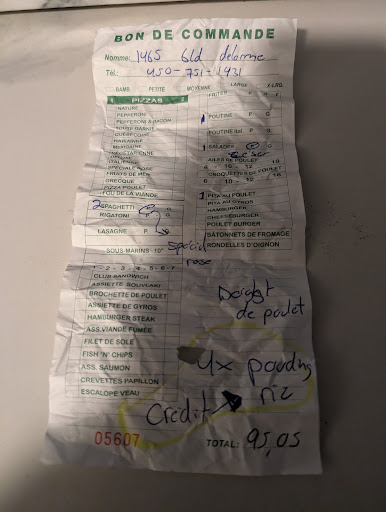 BON DE COMMANDE
Nom: 1465 Gld delorme
Tél.: 450-751-1931
BAMB. PETITE MOYENNE X LRG
1 PIZZAS
NATURE
PEPPERONI
PEPPERONI & BACON
TOUTE GARNIE
QUÉBÉCOISE
HAWAIENNE
MEXICAINE
VÉGÉTARIENNE
ITALIENNE
SPÉCIALE ROSE
FRUITS DE MER
GRECQUE
PIZZA POULET
FOU DE LA VIANDE
2 SPAGHETTI P G
RIGATONI
LASAGNE P G
SOUS-MARINS 10"
Spécial rose
FRITES P G
1 POUTINE P G
POUTINE ital P G
1 SALADES P G
César
AILES DE POULET
6 10 12 18
CROQUETTES DE POULET
6 10 12 18
1 PITA AU POULET
PITA AU GYROS
HAMBURGER
CHEESEBURGER
POULET BURGER
BÂTONNETS DE FROMAGE
RONDELLES D'OIGNON
1 - 2 - 3 - 4 - 5 - 6 - 7
CLUB SANDWICH
ASSIETTE SOUVLAKI
BROCHETTE DE POULET
ASSIETTE DE GYROS
HAMBURGER STEAK
ASS. VIANDE FUMÉE
FILET DE SOLE
FISH 'N' CHIPS
ASS. SAUMON
CREVETTES PAPILLON
ESCALOPE VEAU
Doigt
de poulet
4x pouding
riz
Crédit
05607
TOTAL: 95,05